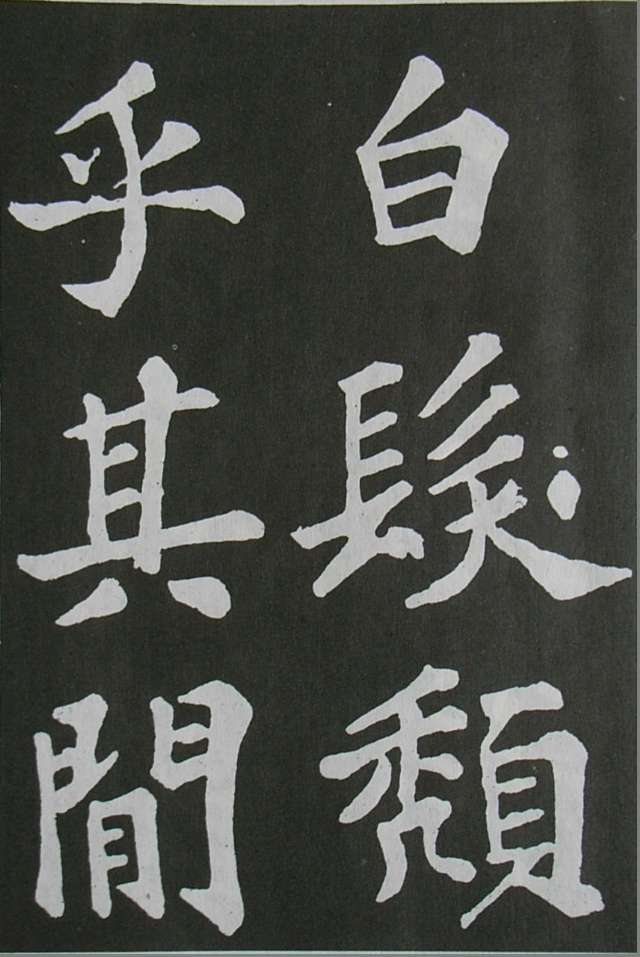 白髮頹
乎其閒